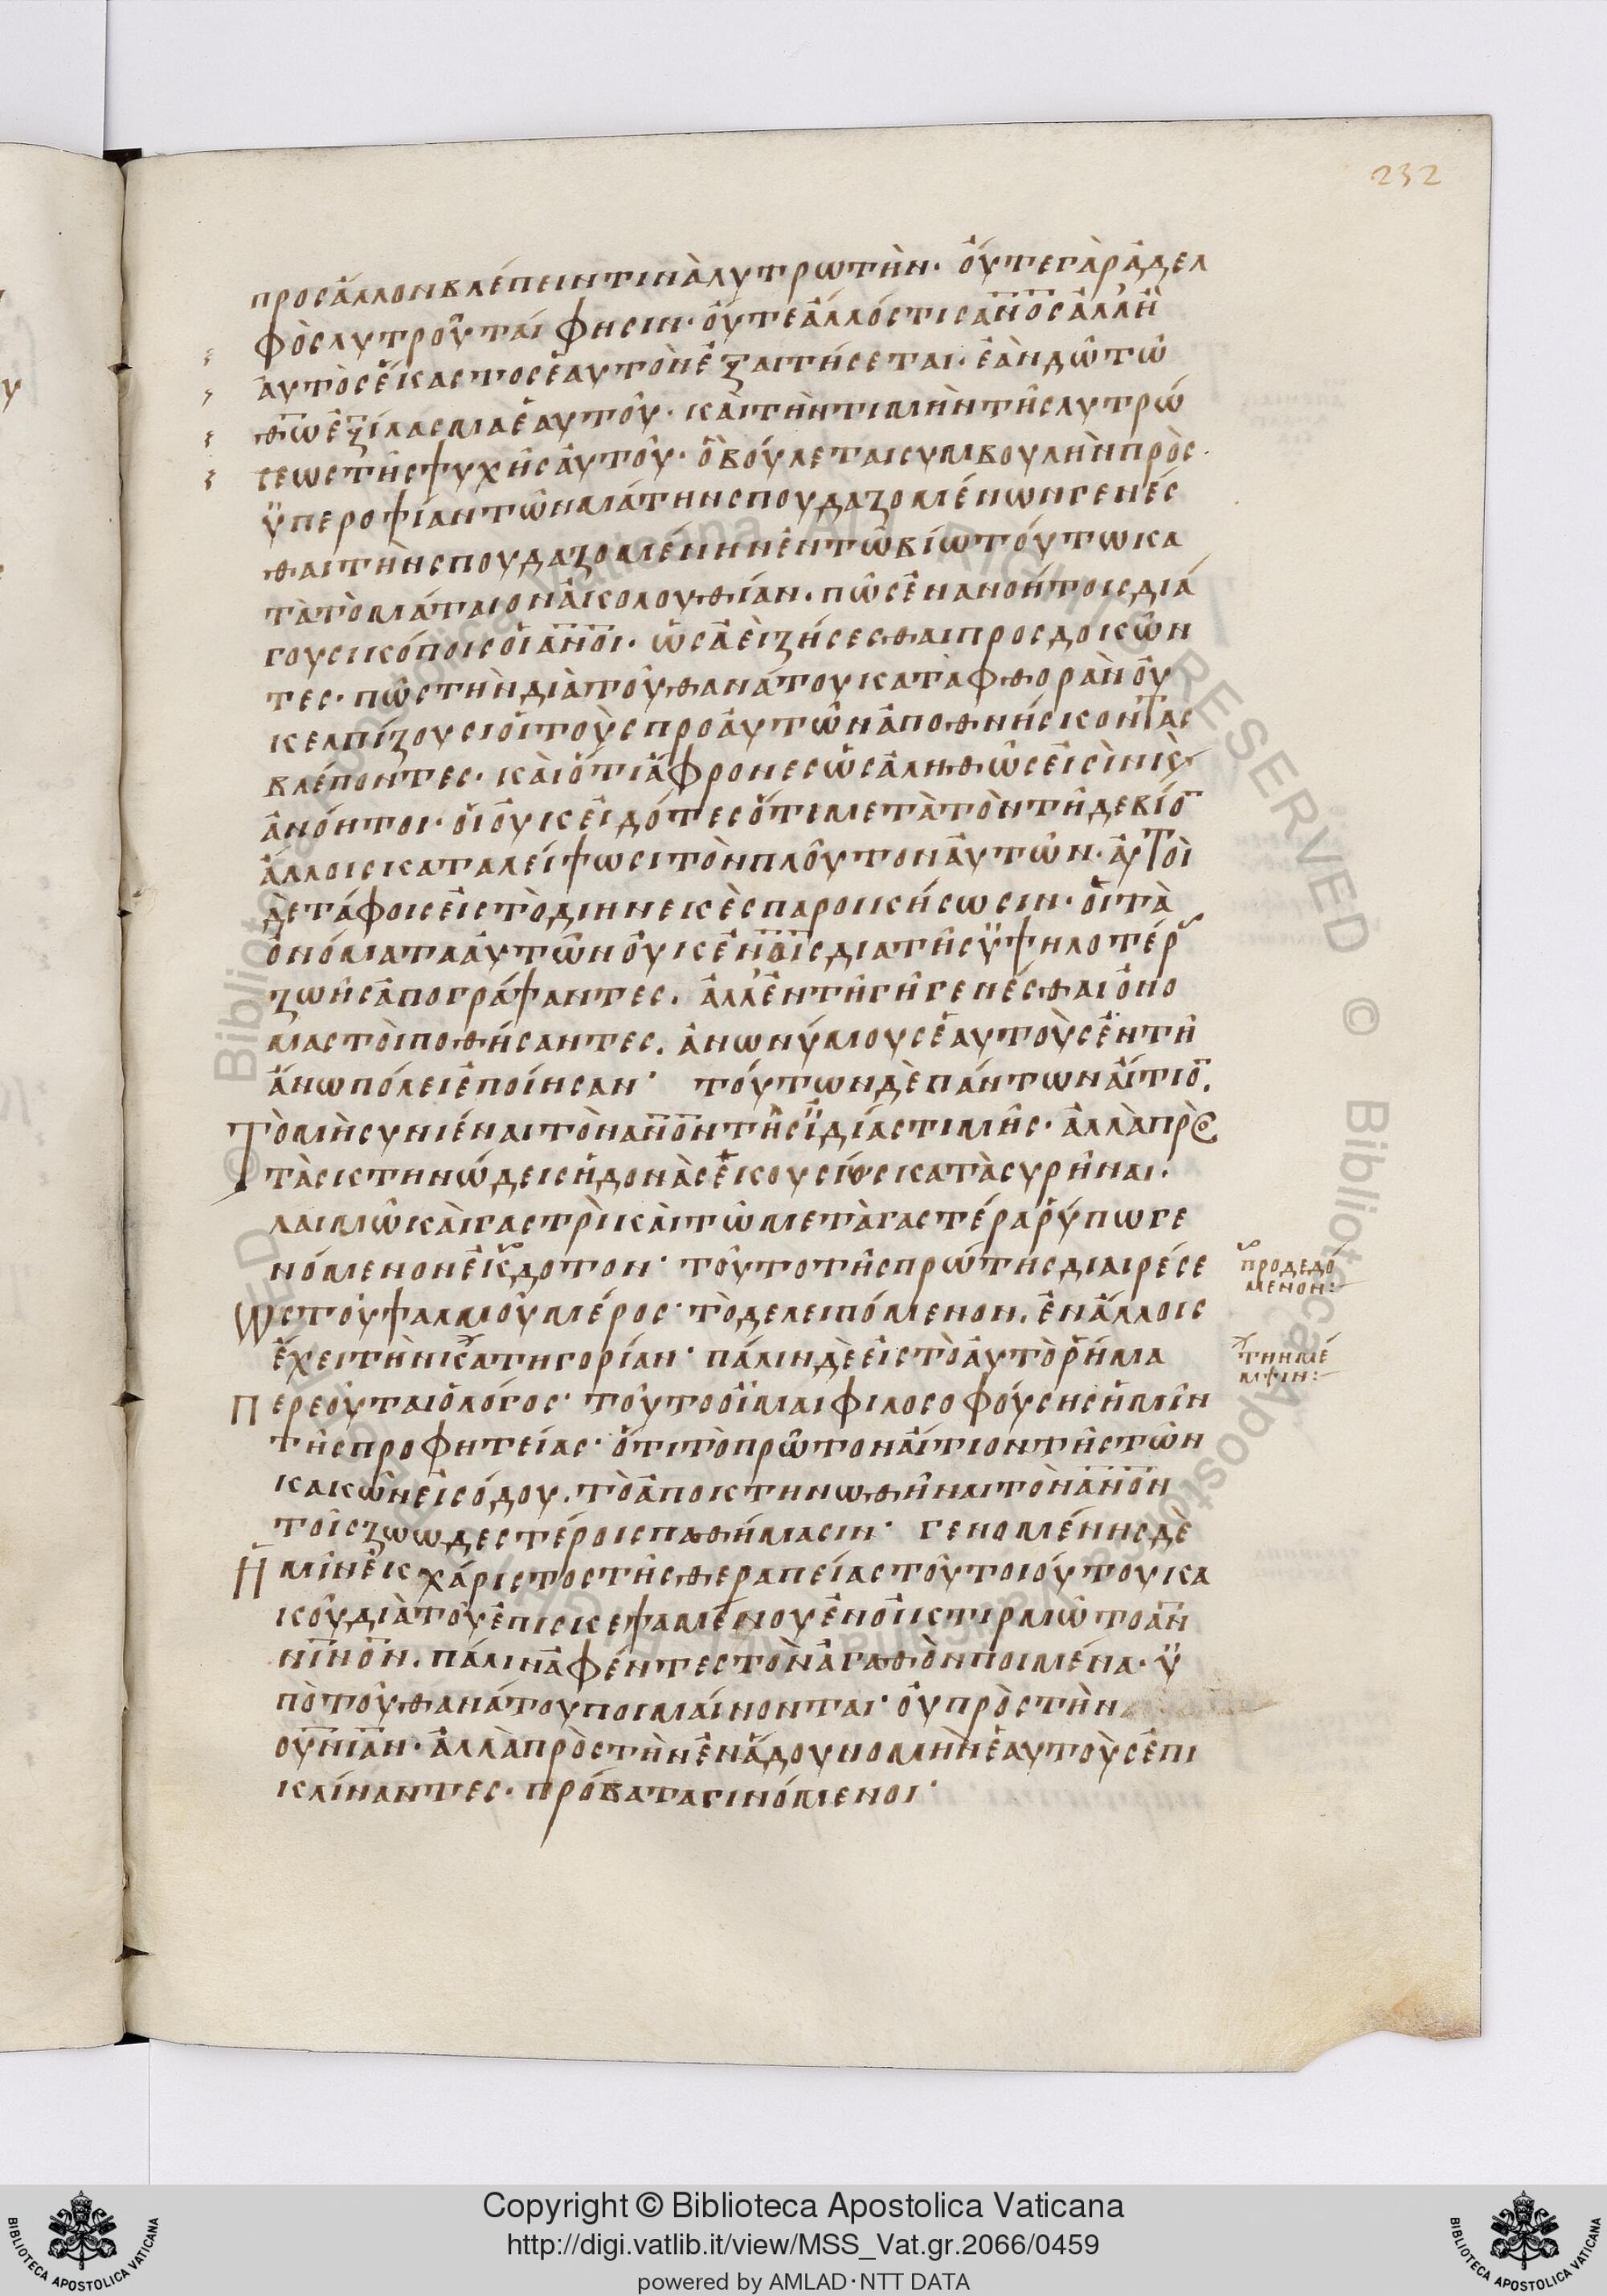 232
προσἄλλονβλέπειντινὰλυτρωτὴν· ὄυτεγὰρἀδελ
φὸςλυτροῦταί φησιν· ὄυτεἄλλόστισα̅ν̅ο̅ςἀλλ᾽ἢ
ἀυτὸςἕκαστοςἑαυτὸνἐξαιτήσεται· ἐὰνδῶτῶ
θ̅ω̅ἐξίλασμαἑαυτοῦ· καὶτὴντιμὴντῆςλυτρώ
σεωςτῆςψυχῆςἀυτοῦ· ὃβούλεταισυμβουλὴνπρὸς
ὑπεροψίαντῶνμάτηνσπουδαζομένωνγενέσ
θαιτὴνσπουδαζομένηνἐντῶβίωτούτωκα
τὰτὸμάταιονἀκολουθίαν· πῶςἐνανοήτοιςδιά
γουσικόποιςοἱα̅ν̅ο̅ι̅· ὡςἀεὶζήσεσθαιπροσδοκῶν
τες· πῶςτὴνδιὰτοῦθανάτουκαταφθορὰνοὐ
κελπίζουσιοἱτοὺςπροἀυτῶνἀποθνήσκοντας
βλέποντες· καὶὅτιἄφρονεςὡςἀληθῶςεἰσὶνκ̅ὲ
ἀνόητοι· οἱοὐκεἰδότεςὅτιμετὰτὸντῆδεβίο̅
ἄλλοιςκαταλείψωσιτὸνπλοῦτονἀυτῶν· ἀυτοὶ
δὲτάφοιςεἰςτὸδιηνεκὲςπαροικήσωσιν· οἱτὰ
ὀνόματαἀυτῶνοὐκἐν̅ο̅ι̅ςδιατῆςὑψηλοτέρ
ζωῆςἀπογράψαντες· ἀλλ᾽ἐντῆγῆγενέσθαιὀνο
μαστὸιποθήσαντες· ἀνωνύμουςἑαυτοὺςἐντῆ
ἄνωπόλειἐποίησαν· τούτωνδὲπάντωνἄιτιο̅·
Τὸμὴσυνιέναιτὸνα̅ν̅ο̅ντῆςἰ̈δίαςτιμῆς· ἀλλὰπρὸς
τὰςκτηνώδειςἡδονὰςἑκουσίωςκατασυρῆναι·
λαιμῶκαὶγαστρὶκαὶτῶμετὰγαστέραῥύπωγε
νόμενονἔκδοτον· τοῦτοτῆςπρώτηςδιαιρέσε
Ωςτοῦψαλμοῦμέρος· τὸδελειπόμενον· ἐνἄλλοις
ἔχειτὴνκατηγορίαν· πάλινδὲεἰςτὸἀυτὸῥῆμα
Περεοῦταιὁλόγος· τοῦτοοἶμαιφιλοσοφούσηςἡμῖν
τῆςπροφητείας· ὅτιτὸπρῶτοναἴτιοντῆςτῶν
κακῶνεἰσόδου· τὸἀποκτηνωθῆναιτὸνα̅ν̅ο̅ν
τοῖςζωωδεστέροιςπαθήμασιν· γενομένηςδὲ
Ημῖνἐκχάριτοςτῆςθεραπείαςτοῦτοιούτουκα
κοῦδιὰτοῦἐπισκεψαμένουἐνοἰκτιρμῶτοα̅ν̅
ν̅ι̅ν̅ον· πάλινἀφέντεςτὸνἀγαθὸνποιμένα· ὑ
πὸτοῦθανάτουποιμαίνονται· οὐπρὸςτὴν
ο̅υ̅ν̅ι̅αν· ἀλλὰπρὸςτὴνἐνἅδουνομὴνἑαυτοὺςἐπι
κλίναντες· πρόβαταγινόμενοι·
προδεδο
μένον:
τηνμέ
μψιν:
Copyright © Biblioteca Apostolica Vaticana
http://digi.vatlib.it/view/MSS_Vat.gr.2066/0459
powered by AMLAD·NTT DATA